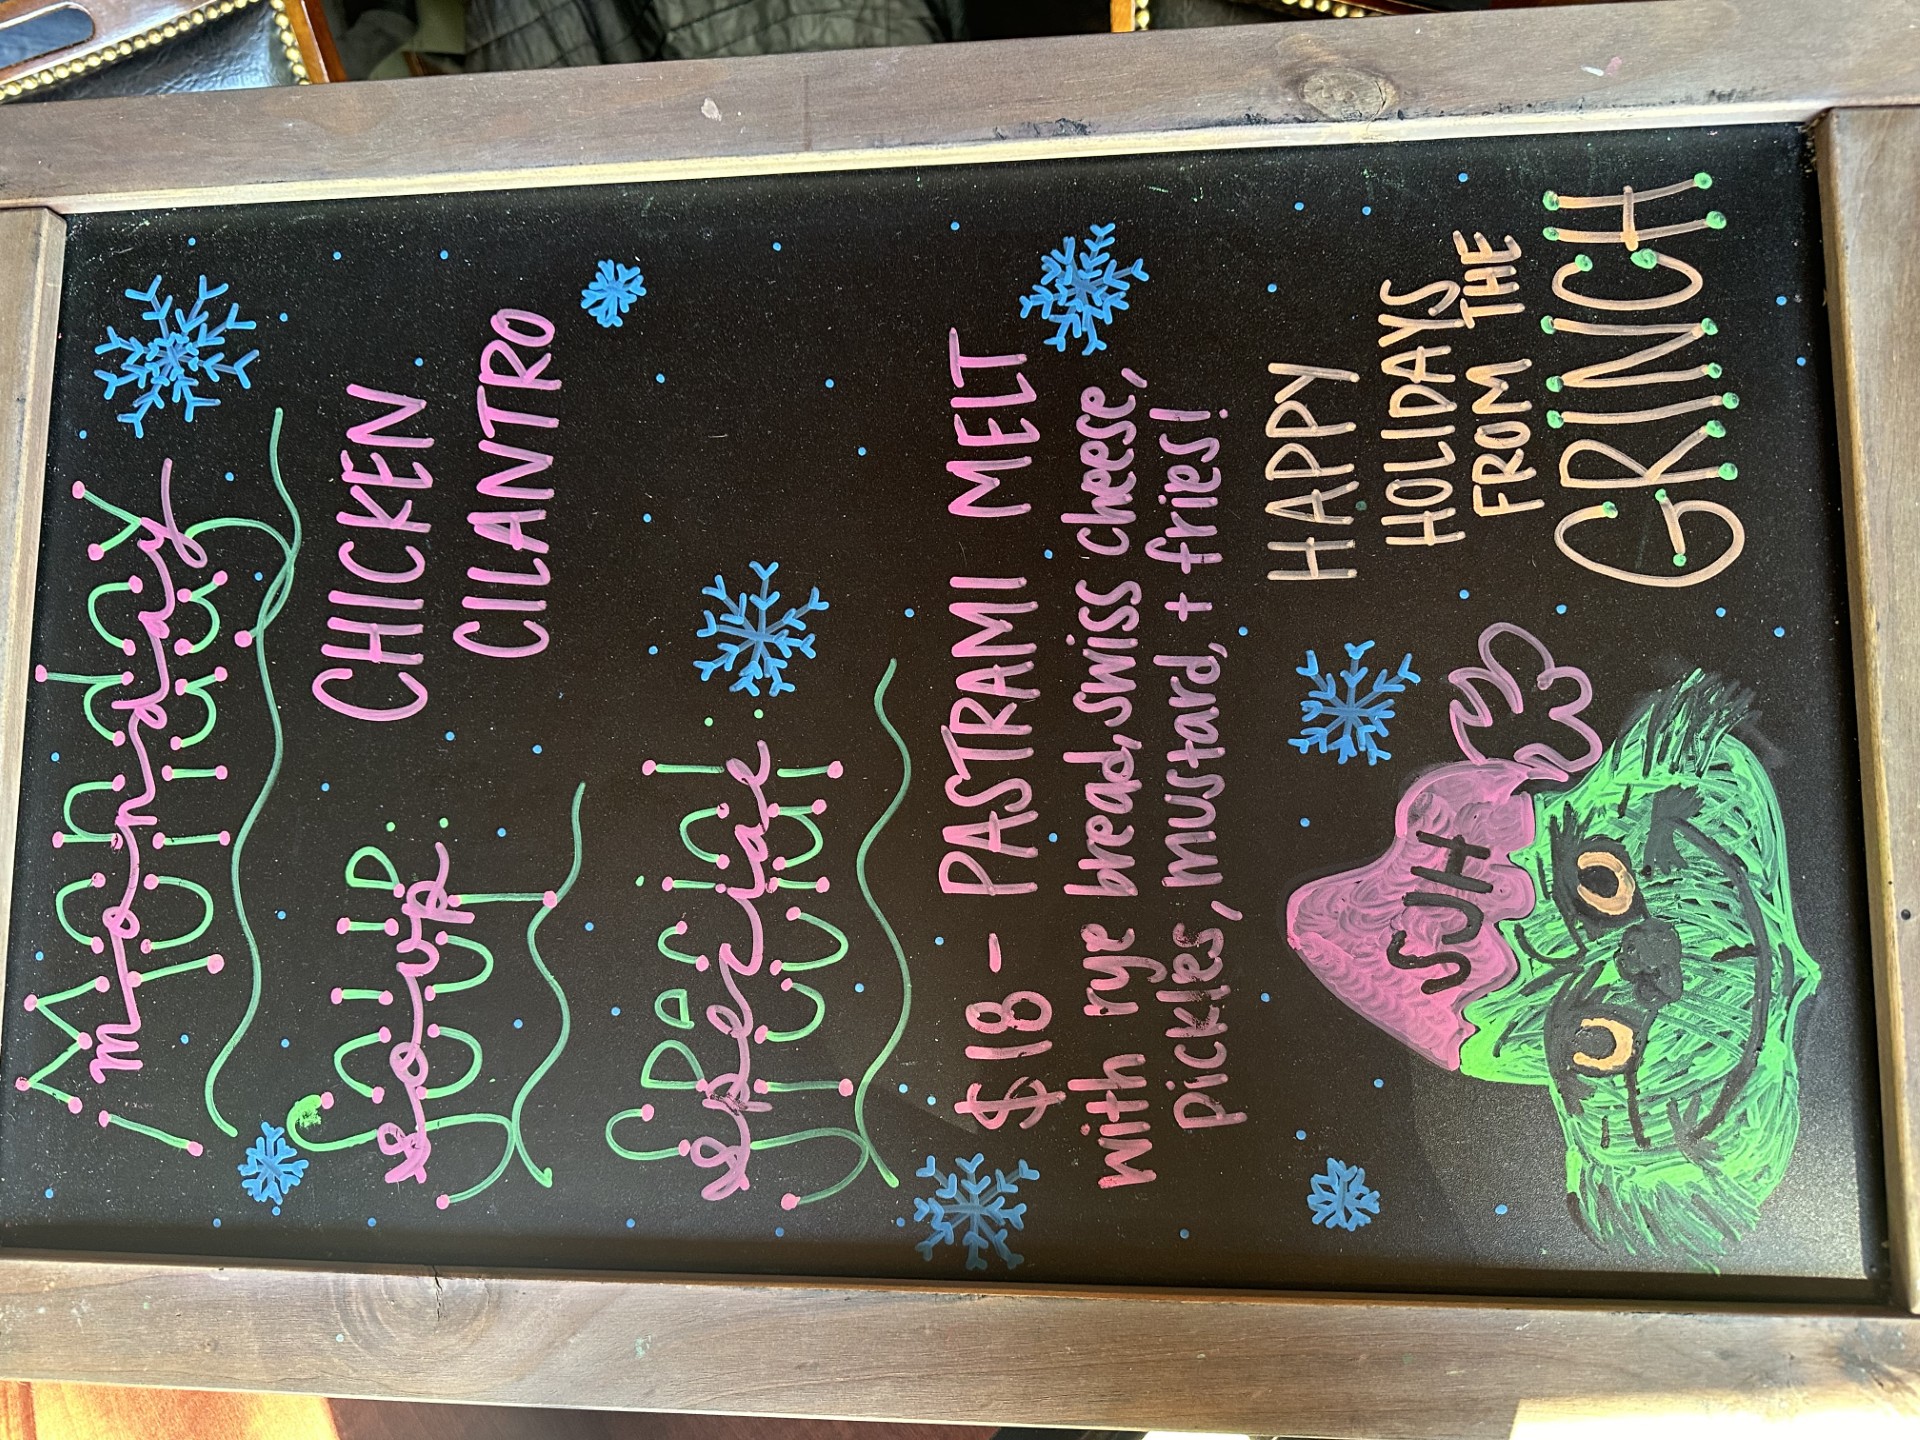 Monday
monday
Soup:
soup
CHICKEN
CILANTRO
Special:
special
$18 - PASTRAMI MELT
with rye bread, swiss cheese,
pickles, mustard, + fries!
HAPPY
HOLIDAYS
FROM THE
GRINCH
SJH